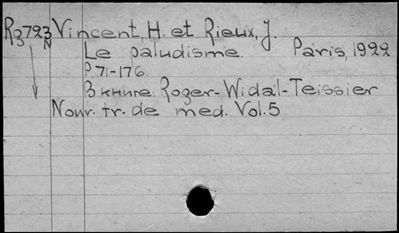 R3723 Vincent, H. et Rieux, J.
N
Le paludisme. Paris, 1922
P. 71-176.
В книге: Roger-Widal-Teissier
Nouv. tr. de med. Vol. 5